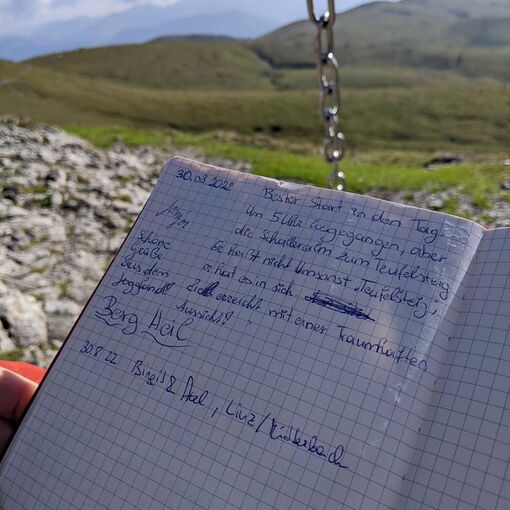 30.08.2022
Bester Start in den Tag
Um 5 Uhr losgegangen, aber
die zum Teufelsteig
Er heißt nicht umsonst Teufelsteig,
er hat es in sich
Ziel erreicht mit einer Traumhaften
Aussicht!
Schöne
Grüße
aus dem
Joglland
Berg Heil
30.8.22 Birgit & Axel, Linz/